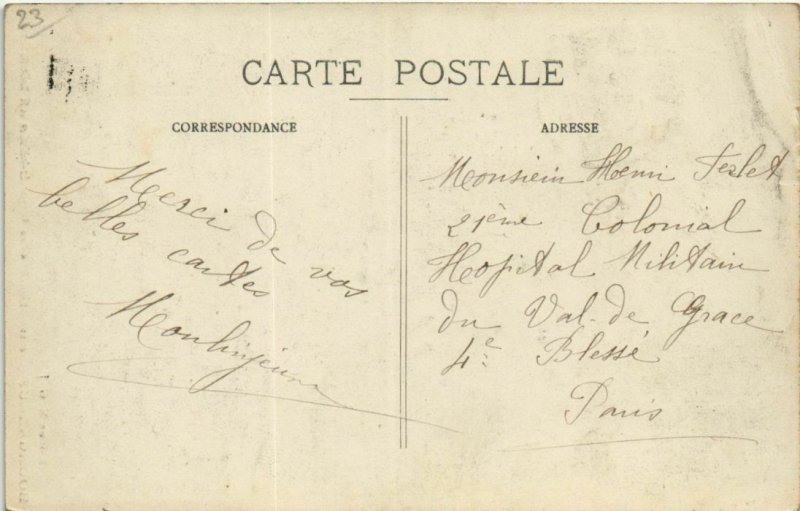 23
CARTE POSTALE
CORRESPONDANCE
Merci de vos
belles cartes
ADRESSE
Monsieur Henri Terlet
21ème Colonial
Hopital Militaire
du Val-de Grace
4e Blessé
Paris